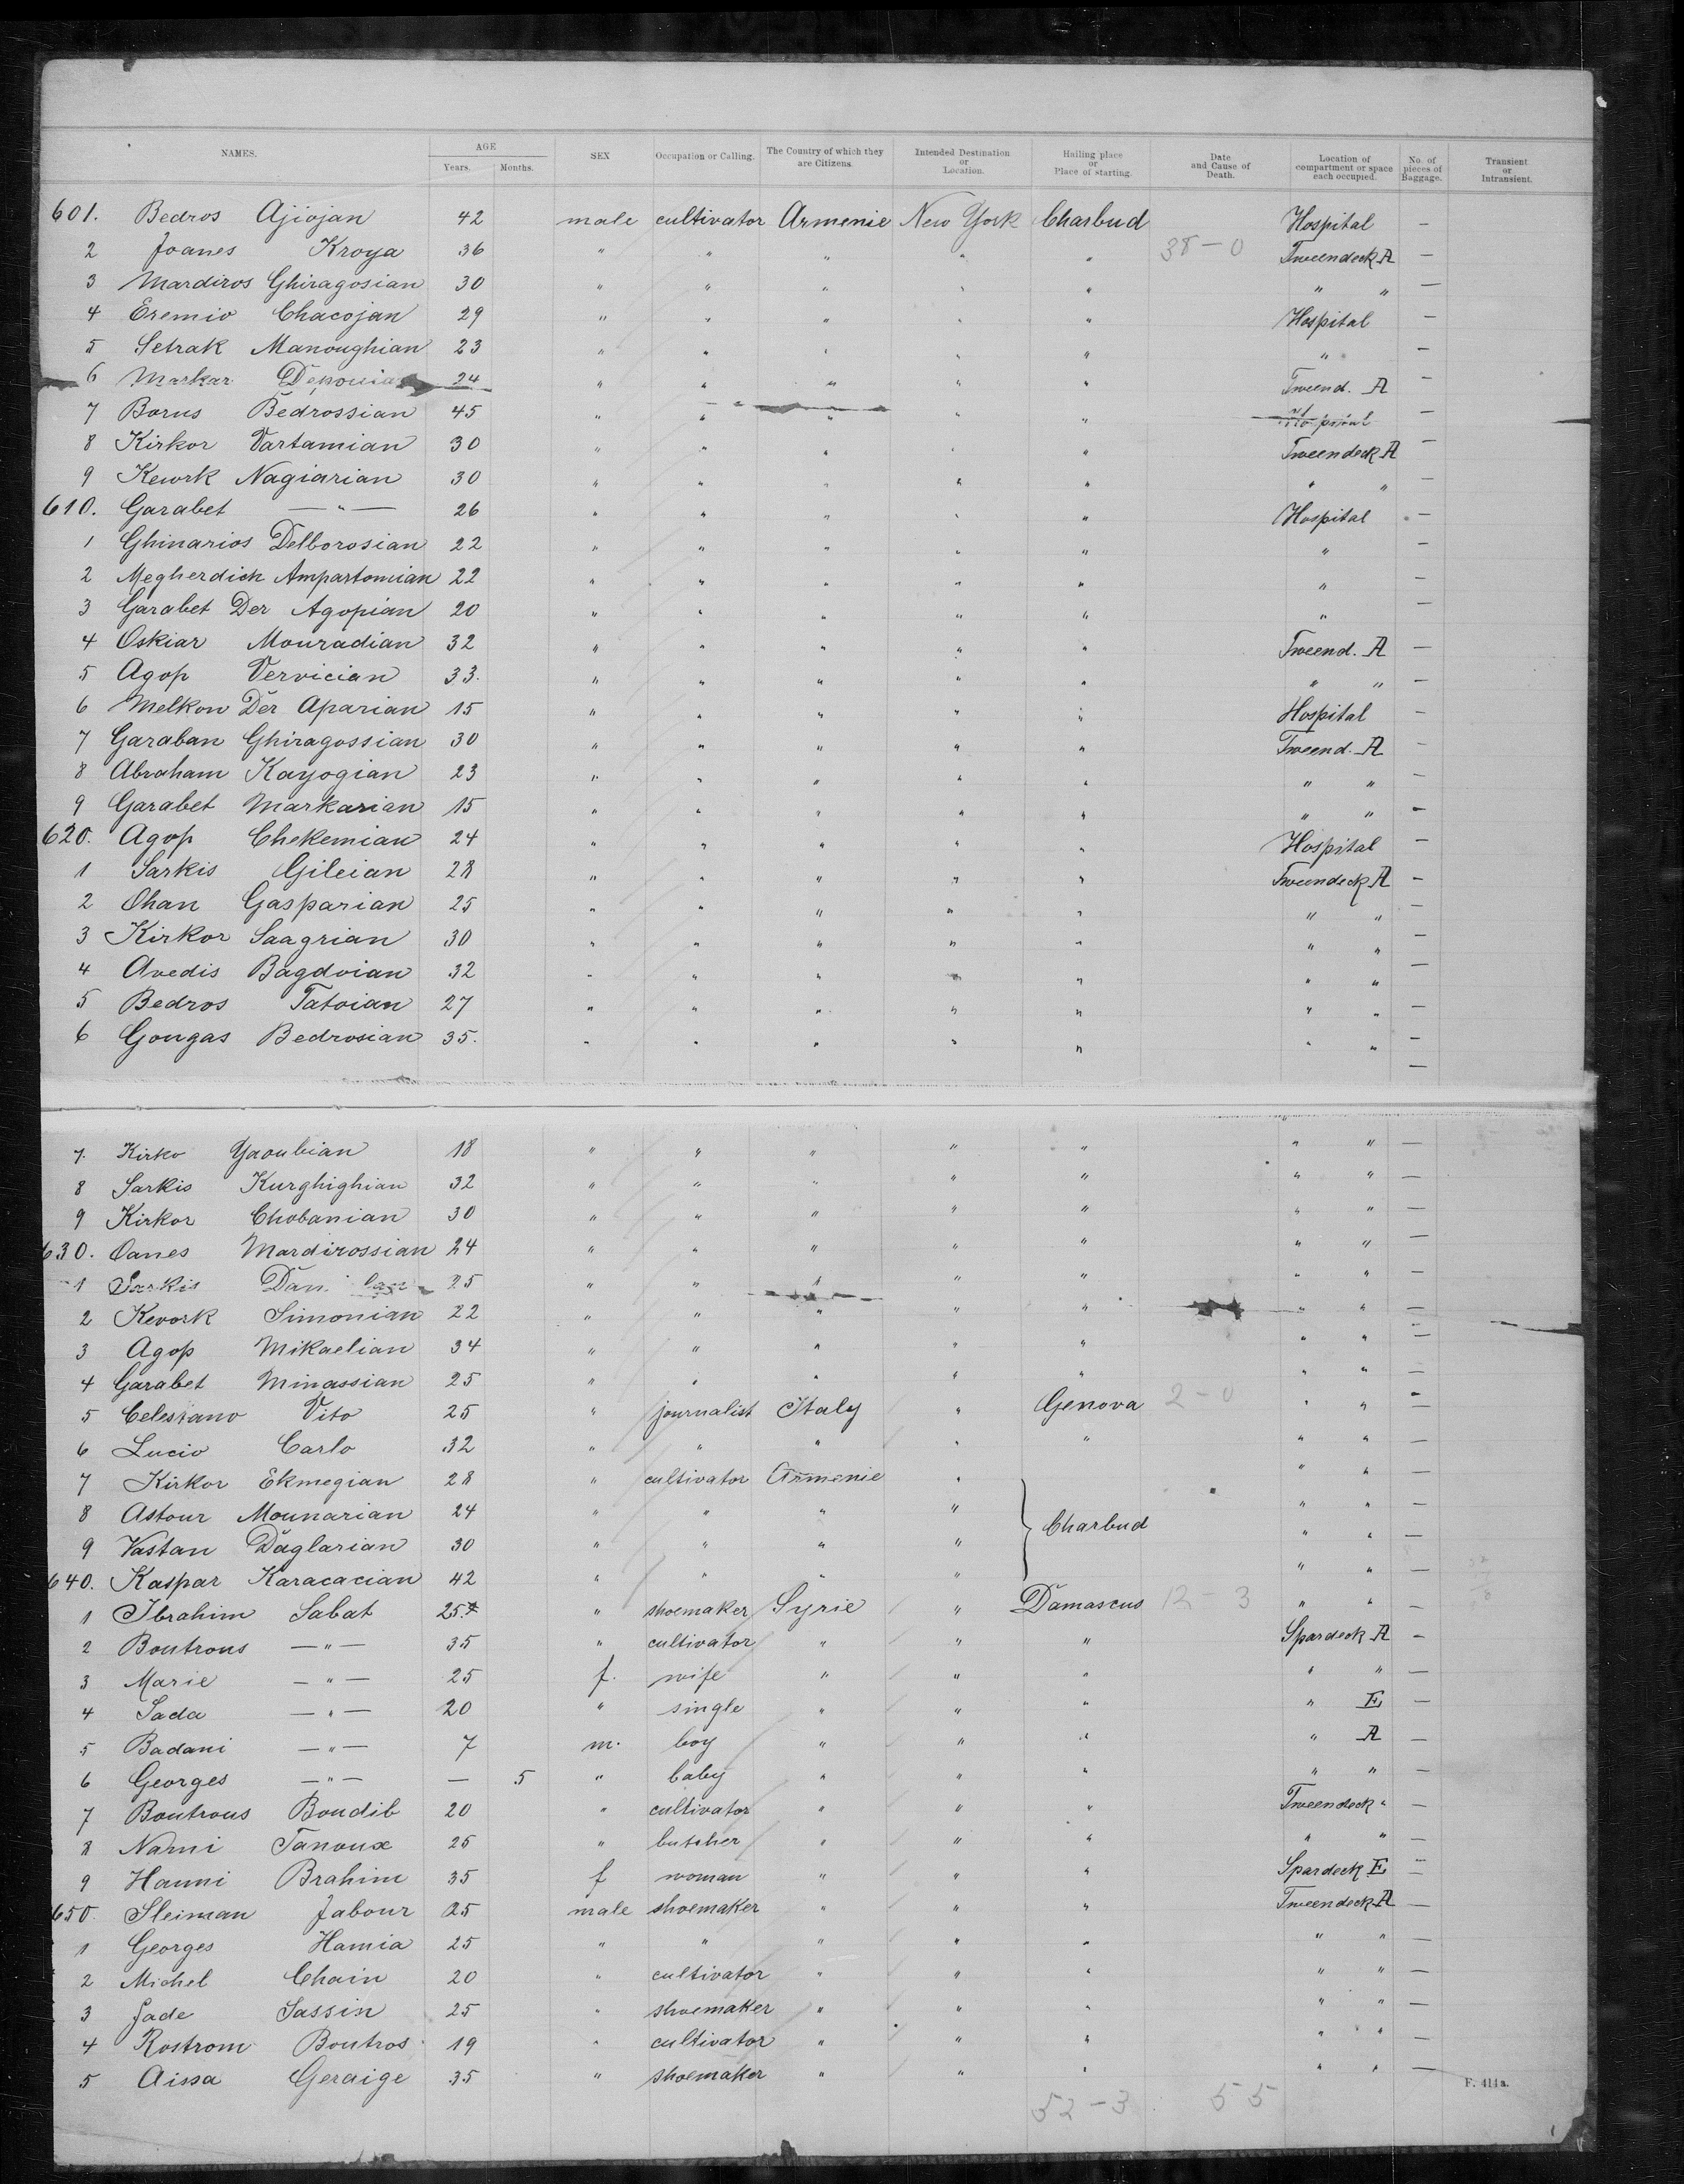 NAMES. AGE SEX Occupation or Calling. The Country of which they are Citizens. Intended Destination or Location. Hailing place or Place of starting. Date and Cause of Death. Location of compartment or space each occupied. No. of pieces of Baggage. Transient or Intransient.
Years. Months.
601. Bedros Ajiojan 42 male cultivator Armenie New York Charbud Hospital —
2 Joanes Kroya 36 " " " " " 38 — 0 Tweendeck A —
3 Mardiros Ghiragosian 30 " " " " " " " —
4 Eremio Chacojan 29 " " " " " Hospital —
5 Setrak Manoughian 23 " " " " " " —
6 Markar 24 " " " " " Tweend. A —
7 Borus Bedrossian 45 " " " " " Hospital —
8 Kirkor Vartamian 30 " " " " " Tweendeck A —
9 Kework Nagiarian 30 " " " " " " " —
610. Garabet — " — 26 " " " " " Hospital —
1 Ghinarios Delborosian 22 " " " " " " —
2 Megherdich Ampartomian 22 " " " " " " —
3 Garabet Der Agopian 20 " " " " " " —
4 Oskiar Mouradian 32 " " " " " Tweend. A —
5 Agop Vervician 33. " " " " " " " —
6 Melkon Der Aparian 15 " " " " " Hospital —
7 Garaban Ghiragossian 30 " " " " " Tweend. A —
8 Abraham Kayogian 23 " " " " " " " —
9 Garabet Markarian 15 " " " " " " " —
620. Agop Chekemian 24 " " " " " Hospital —
1 Sarkis Gileian 28 " " " " " Tweendeck A —
2 Ohan Gasparian 25 " " " " " " " —
3 Kirkor Saagrian 30 " " " " " " " —
4 Avedis Bagdoian 32 " " " " " " " —
5 Bedros Tatoian 27 " " " " " " " —
6 Gougas Bedrosian 35. " " " " " " " —
7. Kirko Yaoubian 18 " " " " " " " —
8 Sarkis Kurghighian 32 " " " " " " " —
9 Kirkor Chobanian 30 " " " " " " " —
630. Oanes Mardirossian 24 " " " " " " " —
1 Sarkis 25 " " " " " " " —
2 Kevork Simonian 22 " " " " " " " —
3 Agop Mikaelian 34 " " " " " " " —
4 Garabet Minassian 25 " " " " " " " —
5 Celestano Vito 25 " journalist Italy " Genova 2 — 0 " " —
6 Lucio Carlo 32 " " " " " " " —
7 Kirkor Ekmegian 28 " cultivator Armenie " " " —
8 Astour Mounarian 24 " " " " Charbud " " —
9 Vastan Daglarian 30 " " " " " " —
640. Kaspar Karacacian 42 " " " " " " —
1 Ibrahim Sabat 25. " shoemaker Syrie " Damascus 12 — 3 " " —
2 Boutrous — " — 35 " cultivator " " " Spardeck A —
3 Marie — " — 25 f. wife " " " " " —
4 Sada — " — 20 " single " " " " E —
5 Badani — " — 7 m. boy " " " " A —
6 Georges — " — — 5 " baby " " " " " —
7 Boutrous Boudib 20 " cultivator " " " Tweendeck " —
8 Nami Tanoux 25 " butcher " " " " " —
9 Hanni Brahim 35 f woman " " " Spardeck E —
650. Sleiman Jabour 25 male shoemaker " " " Tweendeck A —
1 Georges Hamia 25 " " " " " " " —
2 Michel Chain 20 " cultivator " " " " " —
3 Jade Sassin 25 " shoemaker " " " " " —
4 Rostrom Boutros 19 " cultivator " " " " " —
5 Aissa Geraige 35 " shoemaker " " " " " —
F. 414a.
52 — 3 55